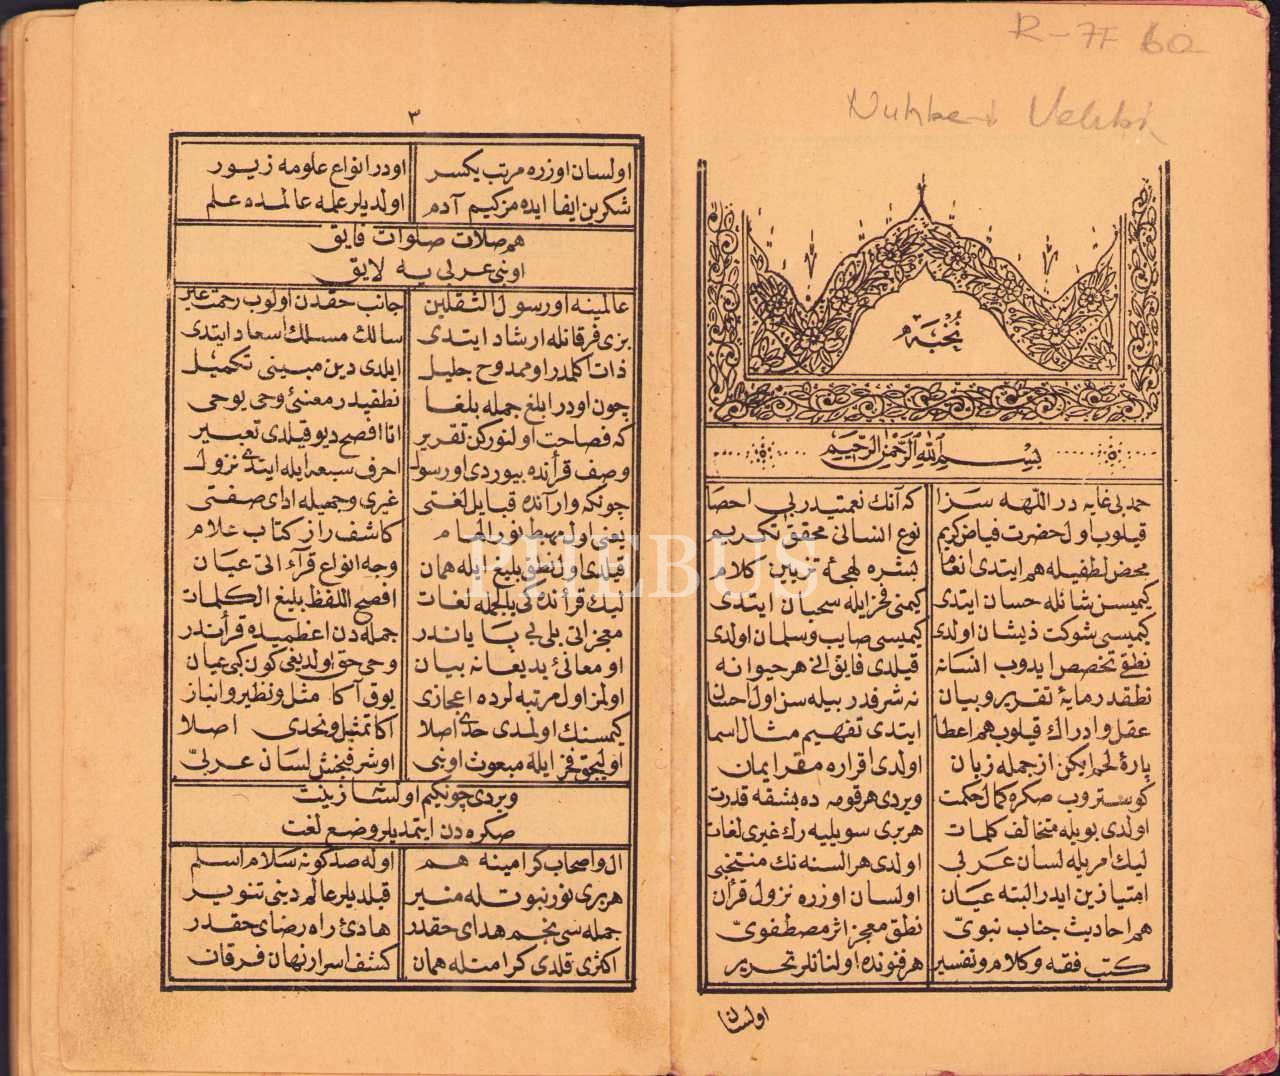 R-7F 60
Nuhbe-i Vehbi
نُخبَهٔ
بِسْمِ اللهِ الرَّحْمٰنِ الرَّحِيمِ
حمد بی غایه در اللهه سزا که آنك نعمتیدر بی احصا
قیلوب اول حضرت فیاض کریم نوع انسانی محقق تکریم
محض لطفیله هم ایتدی انعام بشره لهجهٔ تزیین کلام
کیمیسن شائله حسان ایتدی کیمنی فخر ایله سحبان ایتدی
کیمیسی شوکت ذیشان اولدی کیمیسی صایب وسلمان اولدی
نطقی تخصیص ایدوب انسانه قیلدی فایق انی هر حیوانه
نطقدر مایهٔ تقریر و بیان نه شرفدر بیله سن اول احسان
عقل و ادراك قیلوب هم اعطا ایتدی تفهیم مثال اسما
پارهٔ لحم ایکن از جمله زبان اولدی اقراره مقر ایمان
کوستروب صکره کمال حکمت ویردی هر قومه ده بشقه قدرت
اولدی بویله متخالف کلمات هر بری سویلیه رك غیری لغات
لیك امریله لسان عربی اولدی هر السنه نك منتخبی
امتیازین ایدر البته عیان اولسان اوزره نزول قرآن
هم احادیث جناب نبوی نطق معجز اثر مصطفوی
کتب فقه و کلام و تفسیر هر فنونده اولنانلر تحریر
اولسان
٣
اولسان اوزره مرتب یکسر اودر انواع علومه زیور
شکرین ایفا ایده مز کیم آدم اولدیلر علمه عالمده علم
هم صلات صلوات فایق
اونبی عربی یه لایق
عالمینه اورسول الثقلین جانب حقدن اولوب رحمت
بزی فرقانله ارشاد ایتدی سالك مسلك اسعاد ایتدی
ذات کلمدر اوممدوح جلیل ایلدی دین مبینی تکمیل
چون اودر ابلغ جمله بلغا نطقیدر معنئ وحی یوحی
که فصاحت اولنورکن تقریر انا افصح دیو قیلدی تعبیر
وصف قرآنده بیوردی اورسول احرف سبعه ایله ایتدی نزول
چونکه وار آنده قبایل لغتی غیری وجهیله ادای صفتی
یعنی اول مهبط نور الهام کاشف راز کتاب علام
قیلدی اول نطق بلیغ ایله همان وجه انواع قرآءاتی عیان
لیك قرآنده کی بالجمله لغات افصح اللفظ بلیغ الکلمات
معجزاتی بلی بی پایاندر جمله دن اعظمیده قرآندر
اومعانئ بدیعانه بیان وحی حق اولدیغی کون کبی عیان
اولمز اول مرتبه لرده اعجازی یوق آکا مثل و نظیر و انباز
کیمسنك اولمدی حدی اصلا اکا تمثیل وتحدی اصلا
اولیجق فخر ایله مبعوث اونبی اوشرفبخش لسان عربی
ویردی چونکیم اولسانا زینت
صکره دن ایتمدیلر وضع لغت
ال واصحاب کرامینه هم اوله صد کونه سلام اسلم
هر بری نور نبوتله منیر قیلدیلر عالم دینی تنویر
جمله سی نجم هدای حقدر هادئ راه رضای حقدر
اکثری قلدی کرامتله همان کشف اسرار نهان فرقان
PHEBUS